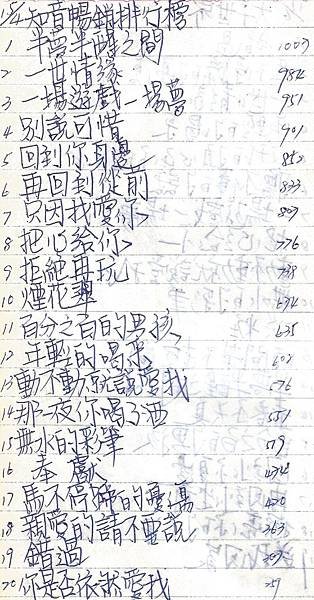 知音暢銷排行榜
1 半夢半醒之間 1007
2 一世情緣 984
3 一場遊戲一場夢 951
4 別說可惜 901
5 回到你身邊 852
6 再回到從前 833
7 只因我愛你 807
8 把心給你 776
9 拒絕再玩 738
10 煙花 674
11 百分之百的男孩 635
12 年輕的喝采 602
13 動不動就說愛我 576
14 那一夜你喝了酒 551
15 無水的彩筆 519
16 奉獻
17 馬不停蹄的憂傷 420
18 親愛的請不要說 363
19 錯過
20 你是否依然愛我